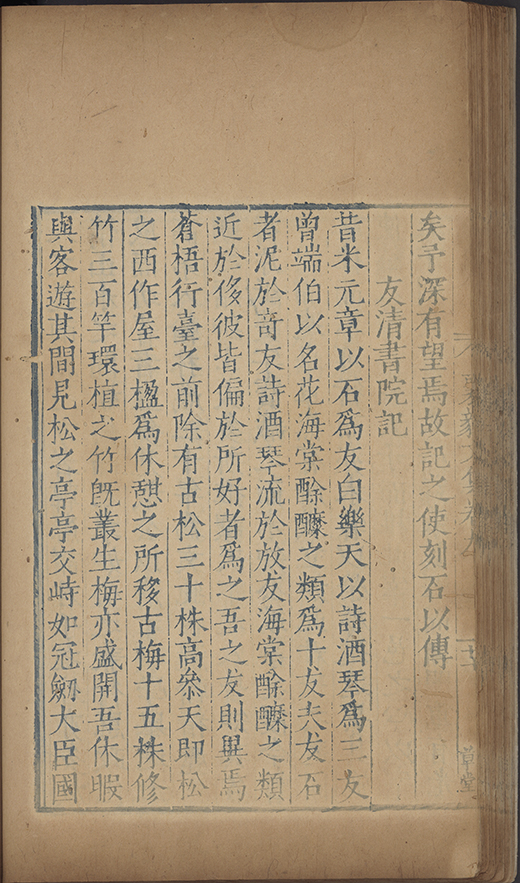 矣予深有望焉故記之使刻石以傳
友清書院記
昔米元章以石爲友白樂天以詩酒琴爲三友
曾端伯以名花海棠酴醿之類爲十友夫友石
者泥於竒友詩酒琴流於放友海棠酴醿之類
近於侈彼皆偏於所好者爲之吾之友則異焉
蒼梧行臺之前除有古松三十株高叅天即松
之西作屋三楹爲休憇之所移古梅十五株修
竹三百竿環植之竹旣叢生梅亦盛開吾休暇
與客遊其間見松之亭亭交峙如冠劒大臣國
草堂